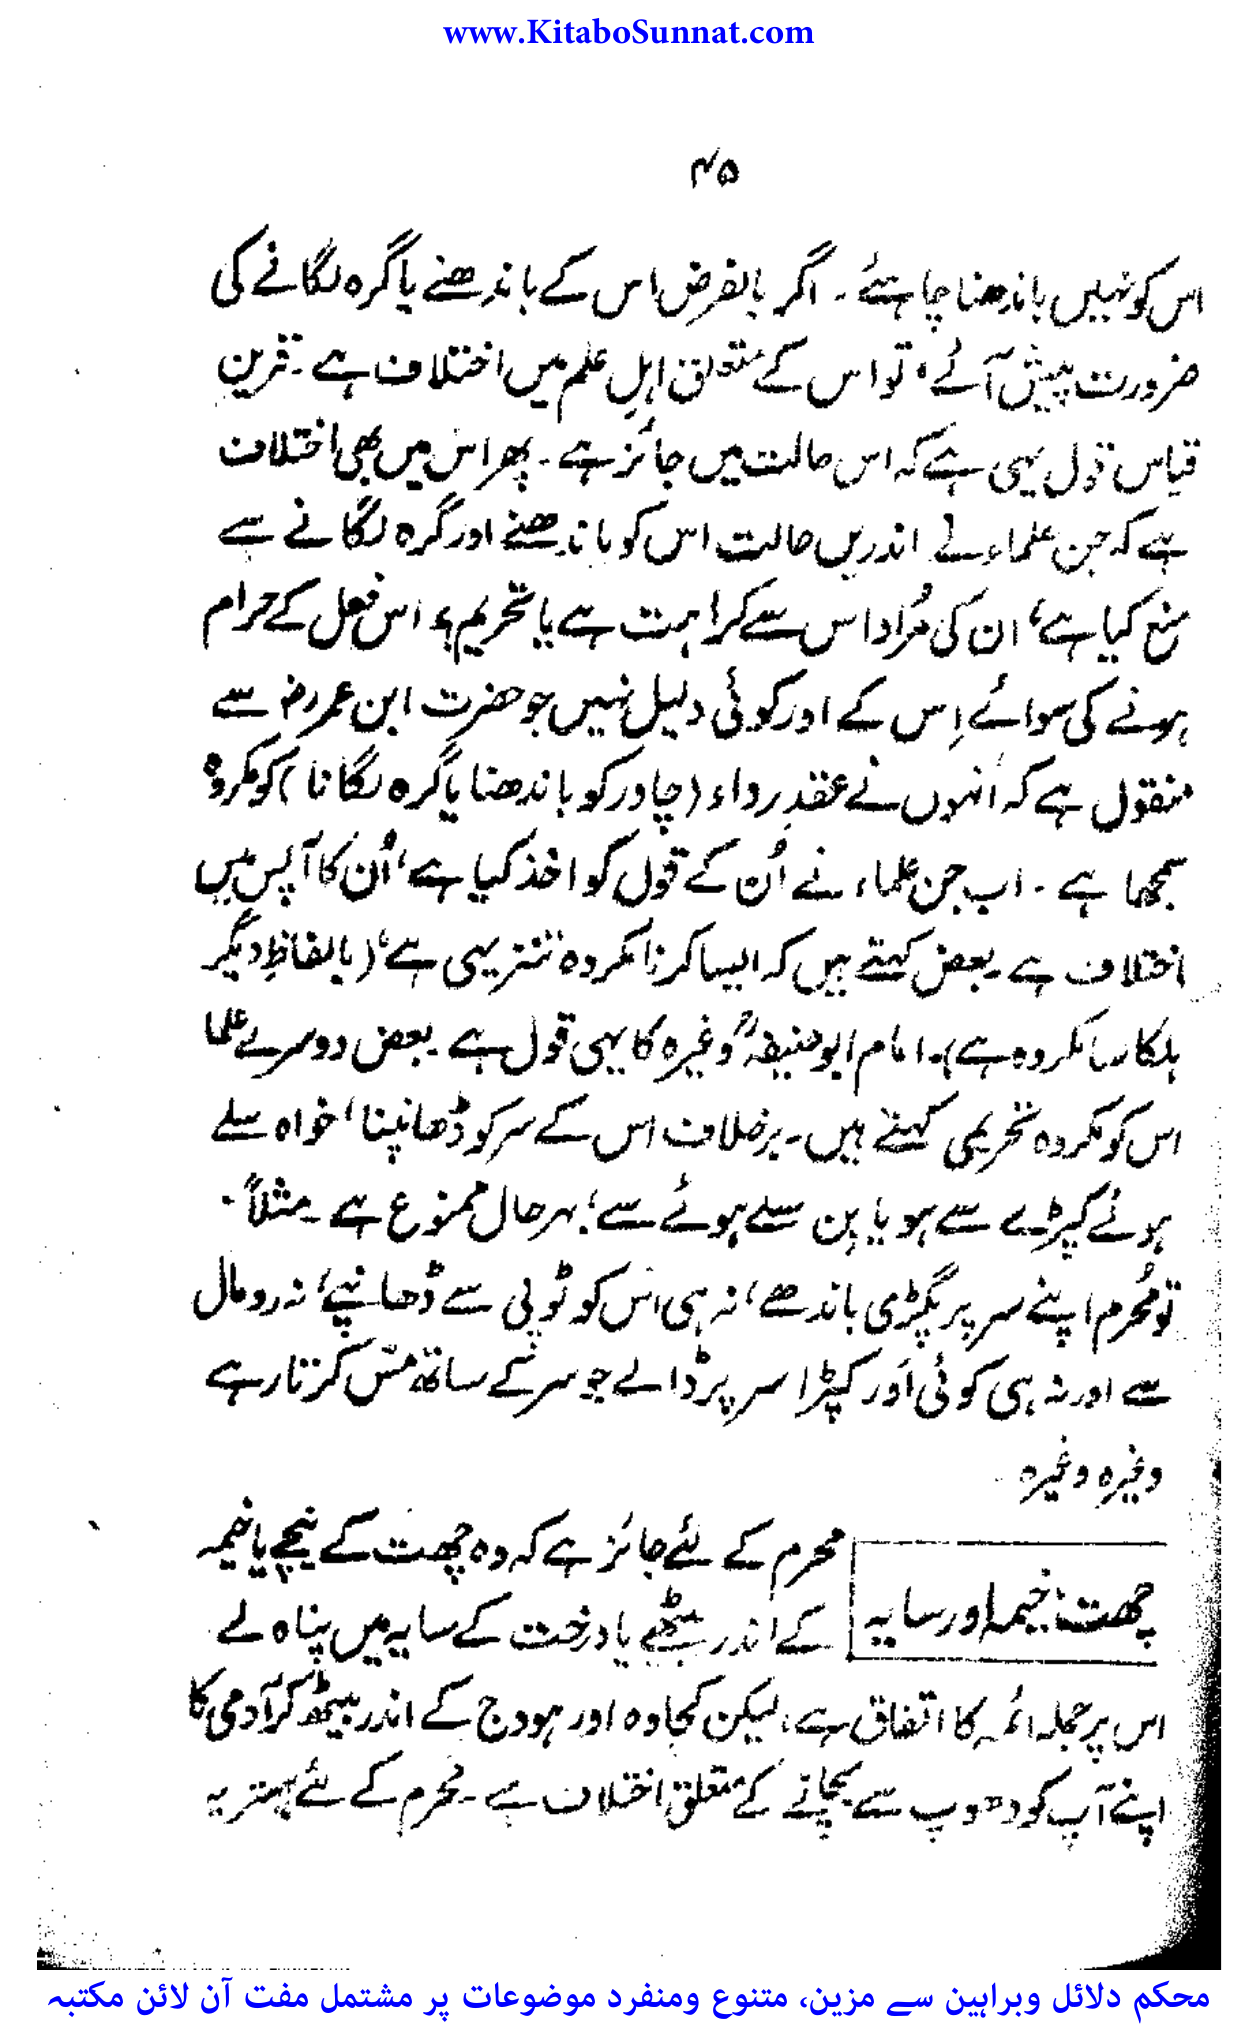 www.KitaboSunnat.com
۴۵
اس کو نہیں باندھنا چاہئے۔ اگر بالفرض اس کے باندھنے یا گرہ لگانے کی
ضرورت پیش آئے، تو اس کے متعلق اہلِ علم میں اختلاف ہے۔ قرین
قیاس قول یہی ہے کہ اس حالت میں جائز ہے۔ پھر اس میں بھی اختلاف
ہے کہ جن علماء نے اندریں حالت اس کو باندھنے اور گرہ لگانے سے
منع کیا ہے، ان کی مُراد اس سے کراہت ہے یا تحریم؟ اس فعل کے حرام
ہونے کی سوائے اِس کے اور کوئی دلیل نہیں جو حضرت ابن عمر رضؓ سے
منقول ہے کہ اُنہوں نے عقدِ رداء (چادر کو باندھنا یا گرہ لگانا) کو مکروہ
سمجھا ہے۔ اب جن علماء نے اُن کے قول کو اخذ کیا ہے، اُن کا آپس میں
اختلاف ہے۔ بعض کہتے ہیں کہ ایسا کرنا مکروہ تنزیہی ہے، (بالفاظِ دیگر
ہلکا سا مکروہ ہے)۔ امام ابو حنیفہؒ وغیرہ کا یہی قول ہے۔ بعض دوسرے علما
اس کو مکروہ تحریمی کہتے ہیں۔ برخلاف اس کے سر کو ڈھانپنا، خواہ سلے
ہوئے کپڑے سے ہو یا بِن سلے ہوئے سے، بہر حال ممنوع ہے۔ مثلاً۔
تو مُحرم اپنے سر پر پگڑی باندھے، نہ ہی اس کو ٹوپی سے ڈھانپے، نہ رومال
سے اور نہ ہی کوئی اَور کپڑا سر پر ڈالے جو سر کے ساتھ مسّ کرتا رہے
وغیرہ وغیرہ
چھت، خیمہ اور سایہ
محرم کے لئے جائز ہے کہ وہ چھت کے نیچے یا خیمہ
کے اندر بیٹھے یا درخت کے سایہ میں پناہ لے۔
اس پر جملہ ائمہ کا اتفاق ہے، لیکن کجاوہ اور ہودج کے اندر بیٹھ کر آدمی کا
اپنے آپ کو دھوپ سے بچانے کے متعلق اختلاف ہے۔ مُحرم کے لئے بہتر یہ
محکم دلائل وبراہین سے مزین، متنوع ومنفرد موضوعات پر مشتمل مفت آن لائن مکتبہ